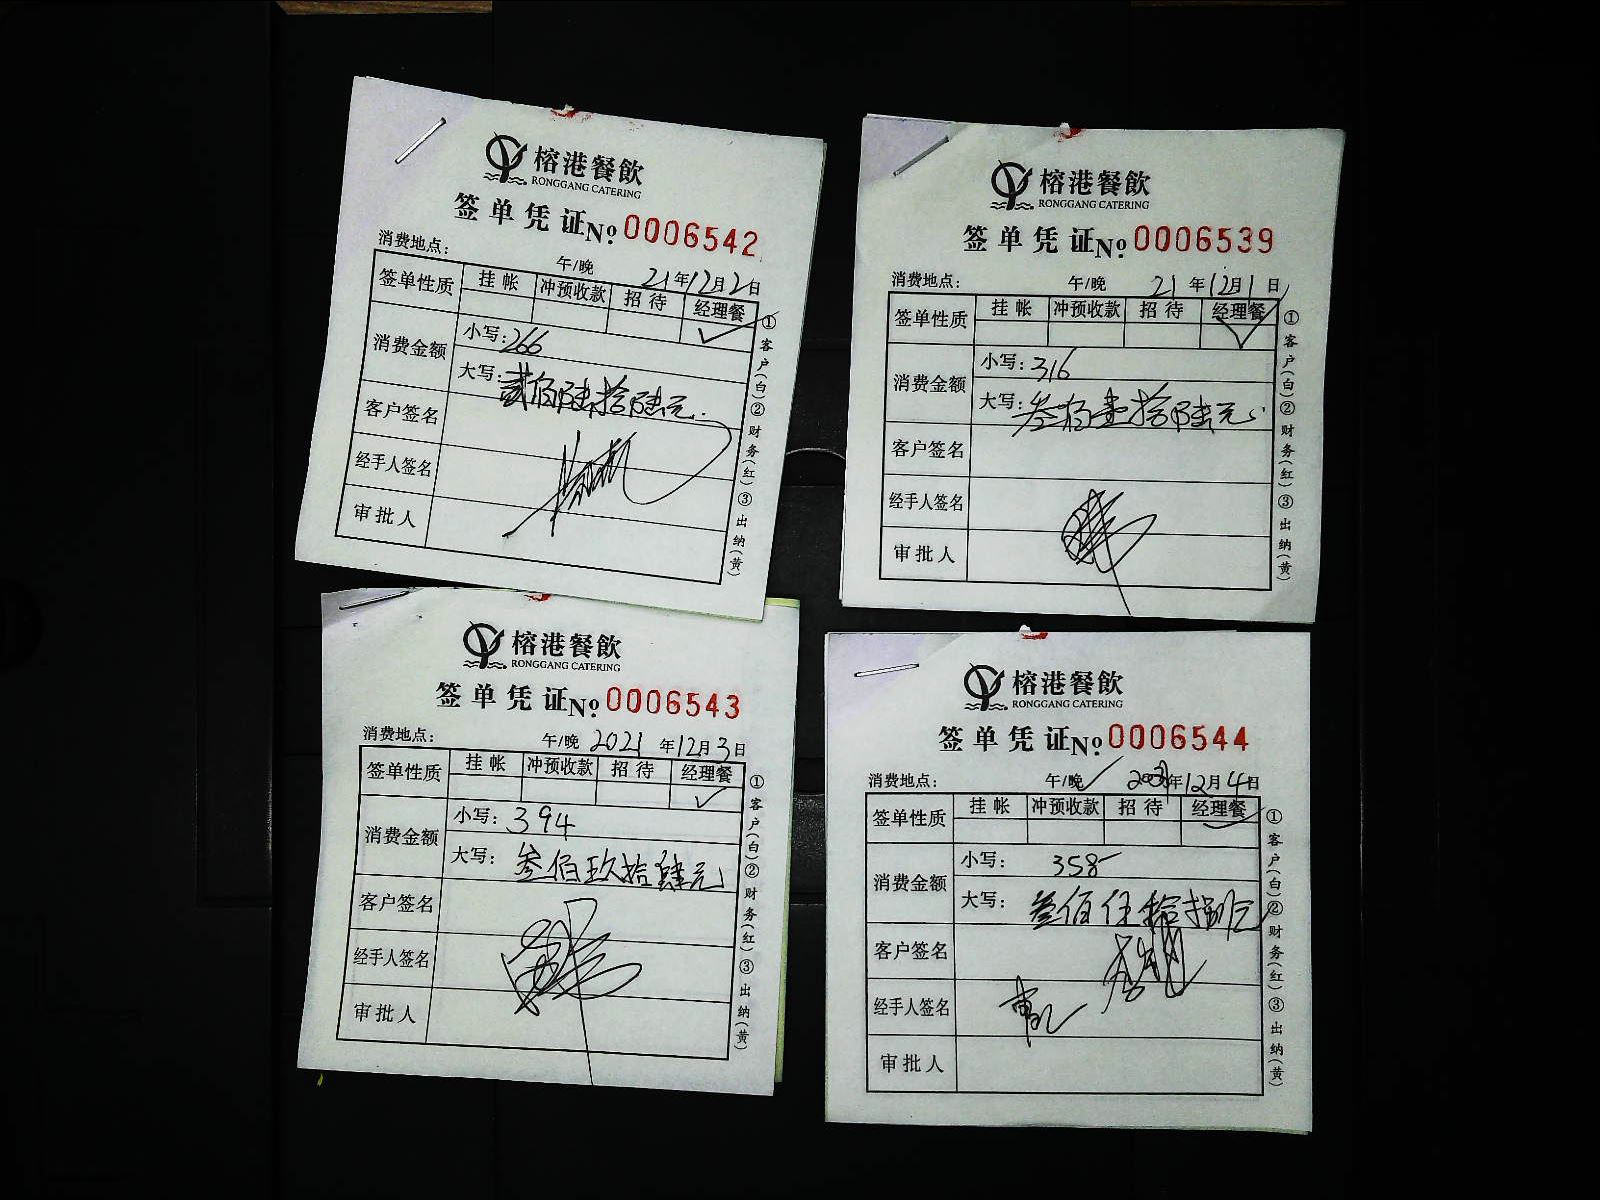 榕港餐飲
RONGGANG CATERING
签单凭证№ 0006542
消费地点： 午/晚 21年12月2日
签单性质 挂帐 冲预收款 招待 经理餐 ✓
消费金额 小写：266
大写：贰佰陆拾陆元
客户签名
经手人签名
审批人
①客户(白)②财务(红)③出纳(黄)
榕港餐飲
RONGGANG CATERING
签单凭证№ 0006539
消费地点： 午/晚 21年12月1日
签单性质 挂帐 冲预收款 招待 经理餐 ✓
消费金额 小写：316
大写：叁佰壹拾陆元
客户签名
经手人签名
审批人
①客户(白)②财务(红)③出纳(黄)
榕港餐飲
RONGGANG CATERING
签单凭证№ 0006543
消费地点： 午/晚 2021年12月3日
签单性质 挂帐 冲预收款 招待 经理餐 ✓
消费金额 小写：394
大写：叁佰玖拾肆元
客户签名
经手人签名
审批人
①客户(白)②财务(红)③出纳(黄)
榕港餐飲
RONGGANG CATERING
签单凭证№ 0006544
消费地点： 午/晚 ✓ 年12月4日
签单性质 挂帐 冲预收款 招待 经理餐 ✓
消费金额 小写：358
大写：叁佰伍拾捌元
客户签名
经手人签名
审批人
①客户(白)②财务(红)③出纳(黄)